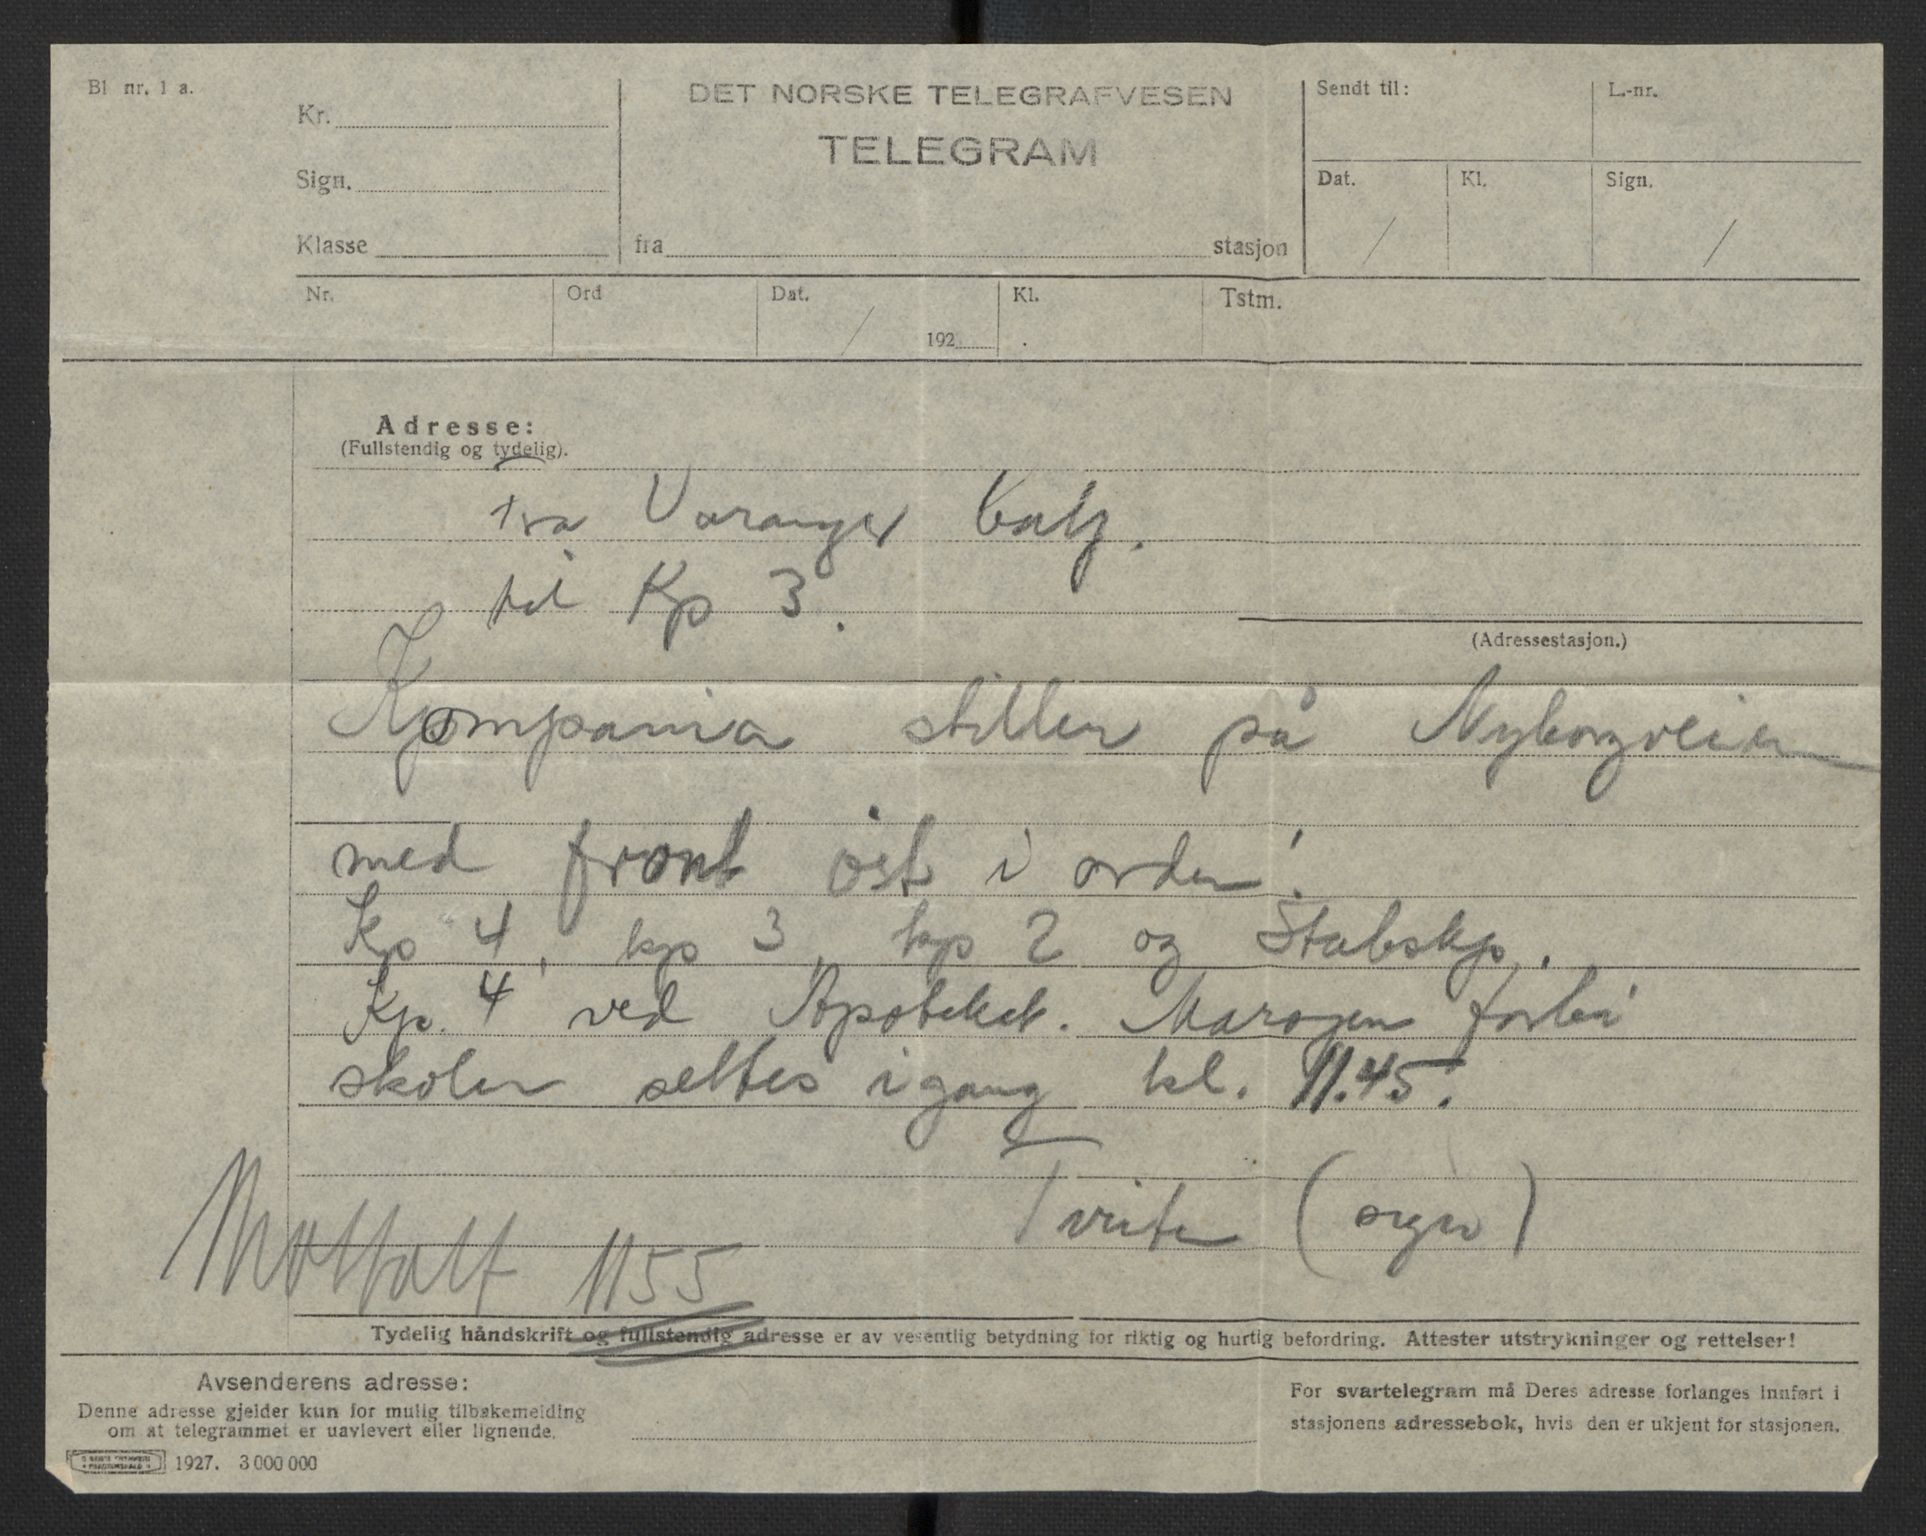 Bl nr. 1 a.
Kr.
Sign.
Klasse
DET NORSKE TELEGRAFVESEN
TELEGRAM
fra stasjon
Sendt til:
L.-nr.
Dat.
Kl.
Sign.
Nr.
Ord
Dat.
192
Kl.
Tstm.
Adresse:
(Fullstendig og tydelig).
Fra Varanger batj.
til Kp 3.
(Adressestasjon.)
Kompania stiller på Nyborgveien
med front øst i orden:
Kp 4, kp 3, kp 2 og Stabskp.
Kp. 4 ved Apoteket. Marsjen forbi
skolen settes igang kl. 11.45.
Tveiten (sign)
Mottatt 1155
Tydelig håndskrift og fullstendig adresse er av vesentlig betydning for riktig og hurtig befordring. Attester utstrykninger og rettelser!
Avsenderens adresse:
Denne adresse gjelder kun for mulig tilbakemelding
om at telegrammet er uavlevert eller lignende.
For svartelegram må Deres adresse forlanges innført i
stasjonens adressebok, hvis den er ukjent for stasjonen.
1927. 3 000 000